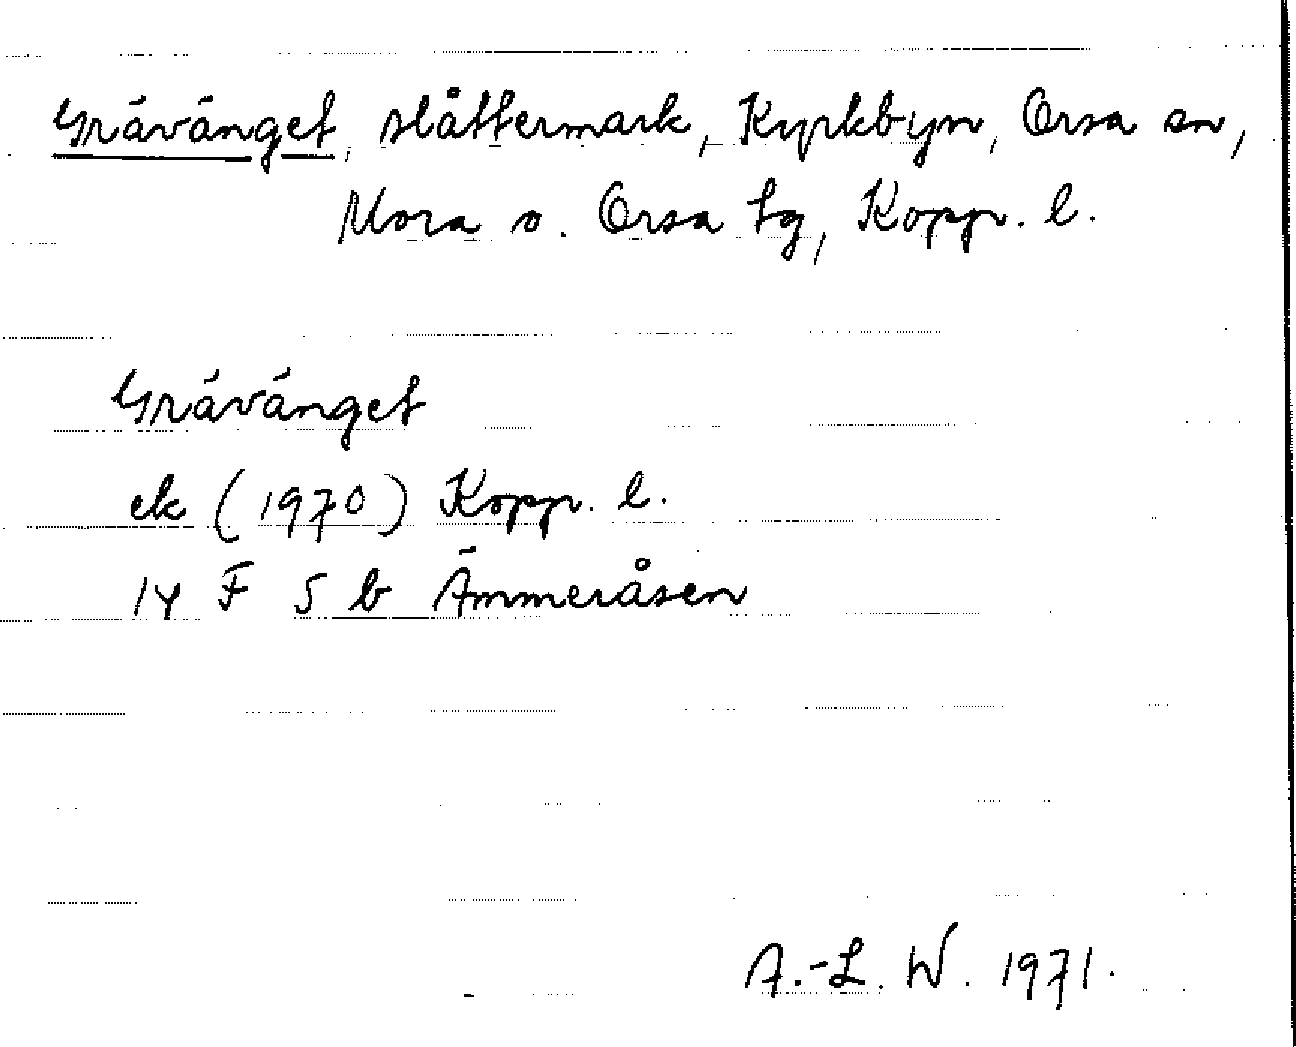 Grävänget, slåttermark, Kyrkbyn, Orsa sn,
Mora o. Orsa tg, Kopp. l.
Grävänget
ek (1970) Kopp. l.
14 F 5 b Ämmeråsen
A.-L. W. 1971.